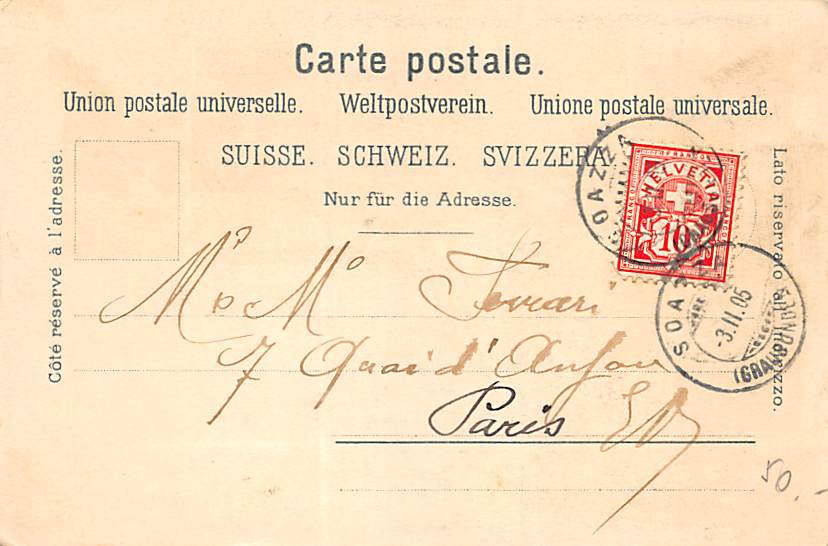 Carte postale.
Union postale universelle. Weltpostverein. Unione postale universale.
SUISSE. SCHWEIZ. SVIZZERA.
Nur für die Adresse.
Côté réservé à l'adresse.
Lato riservato all' indirizzo.
FRANCO
HELVETIA
10
SOAZZA
SOAZZA
-3.II.05
(GRAUBÜNDEN)
Ferrari
7 Quai d'Anjou
Paris
50.-